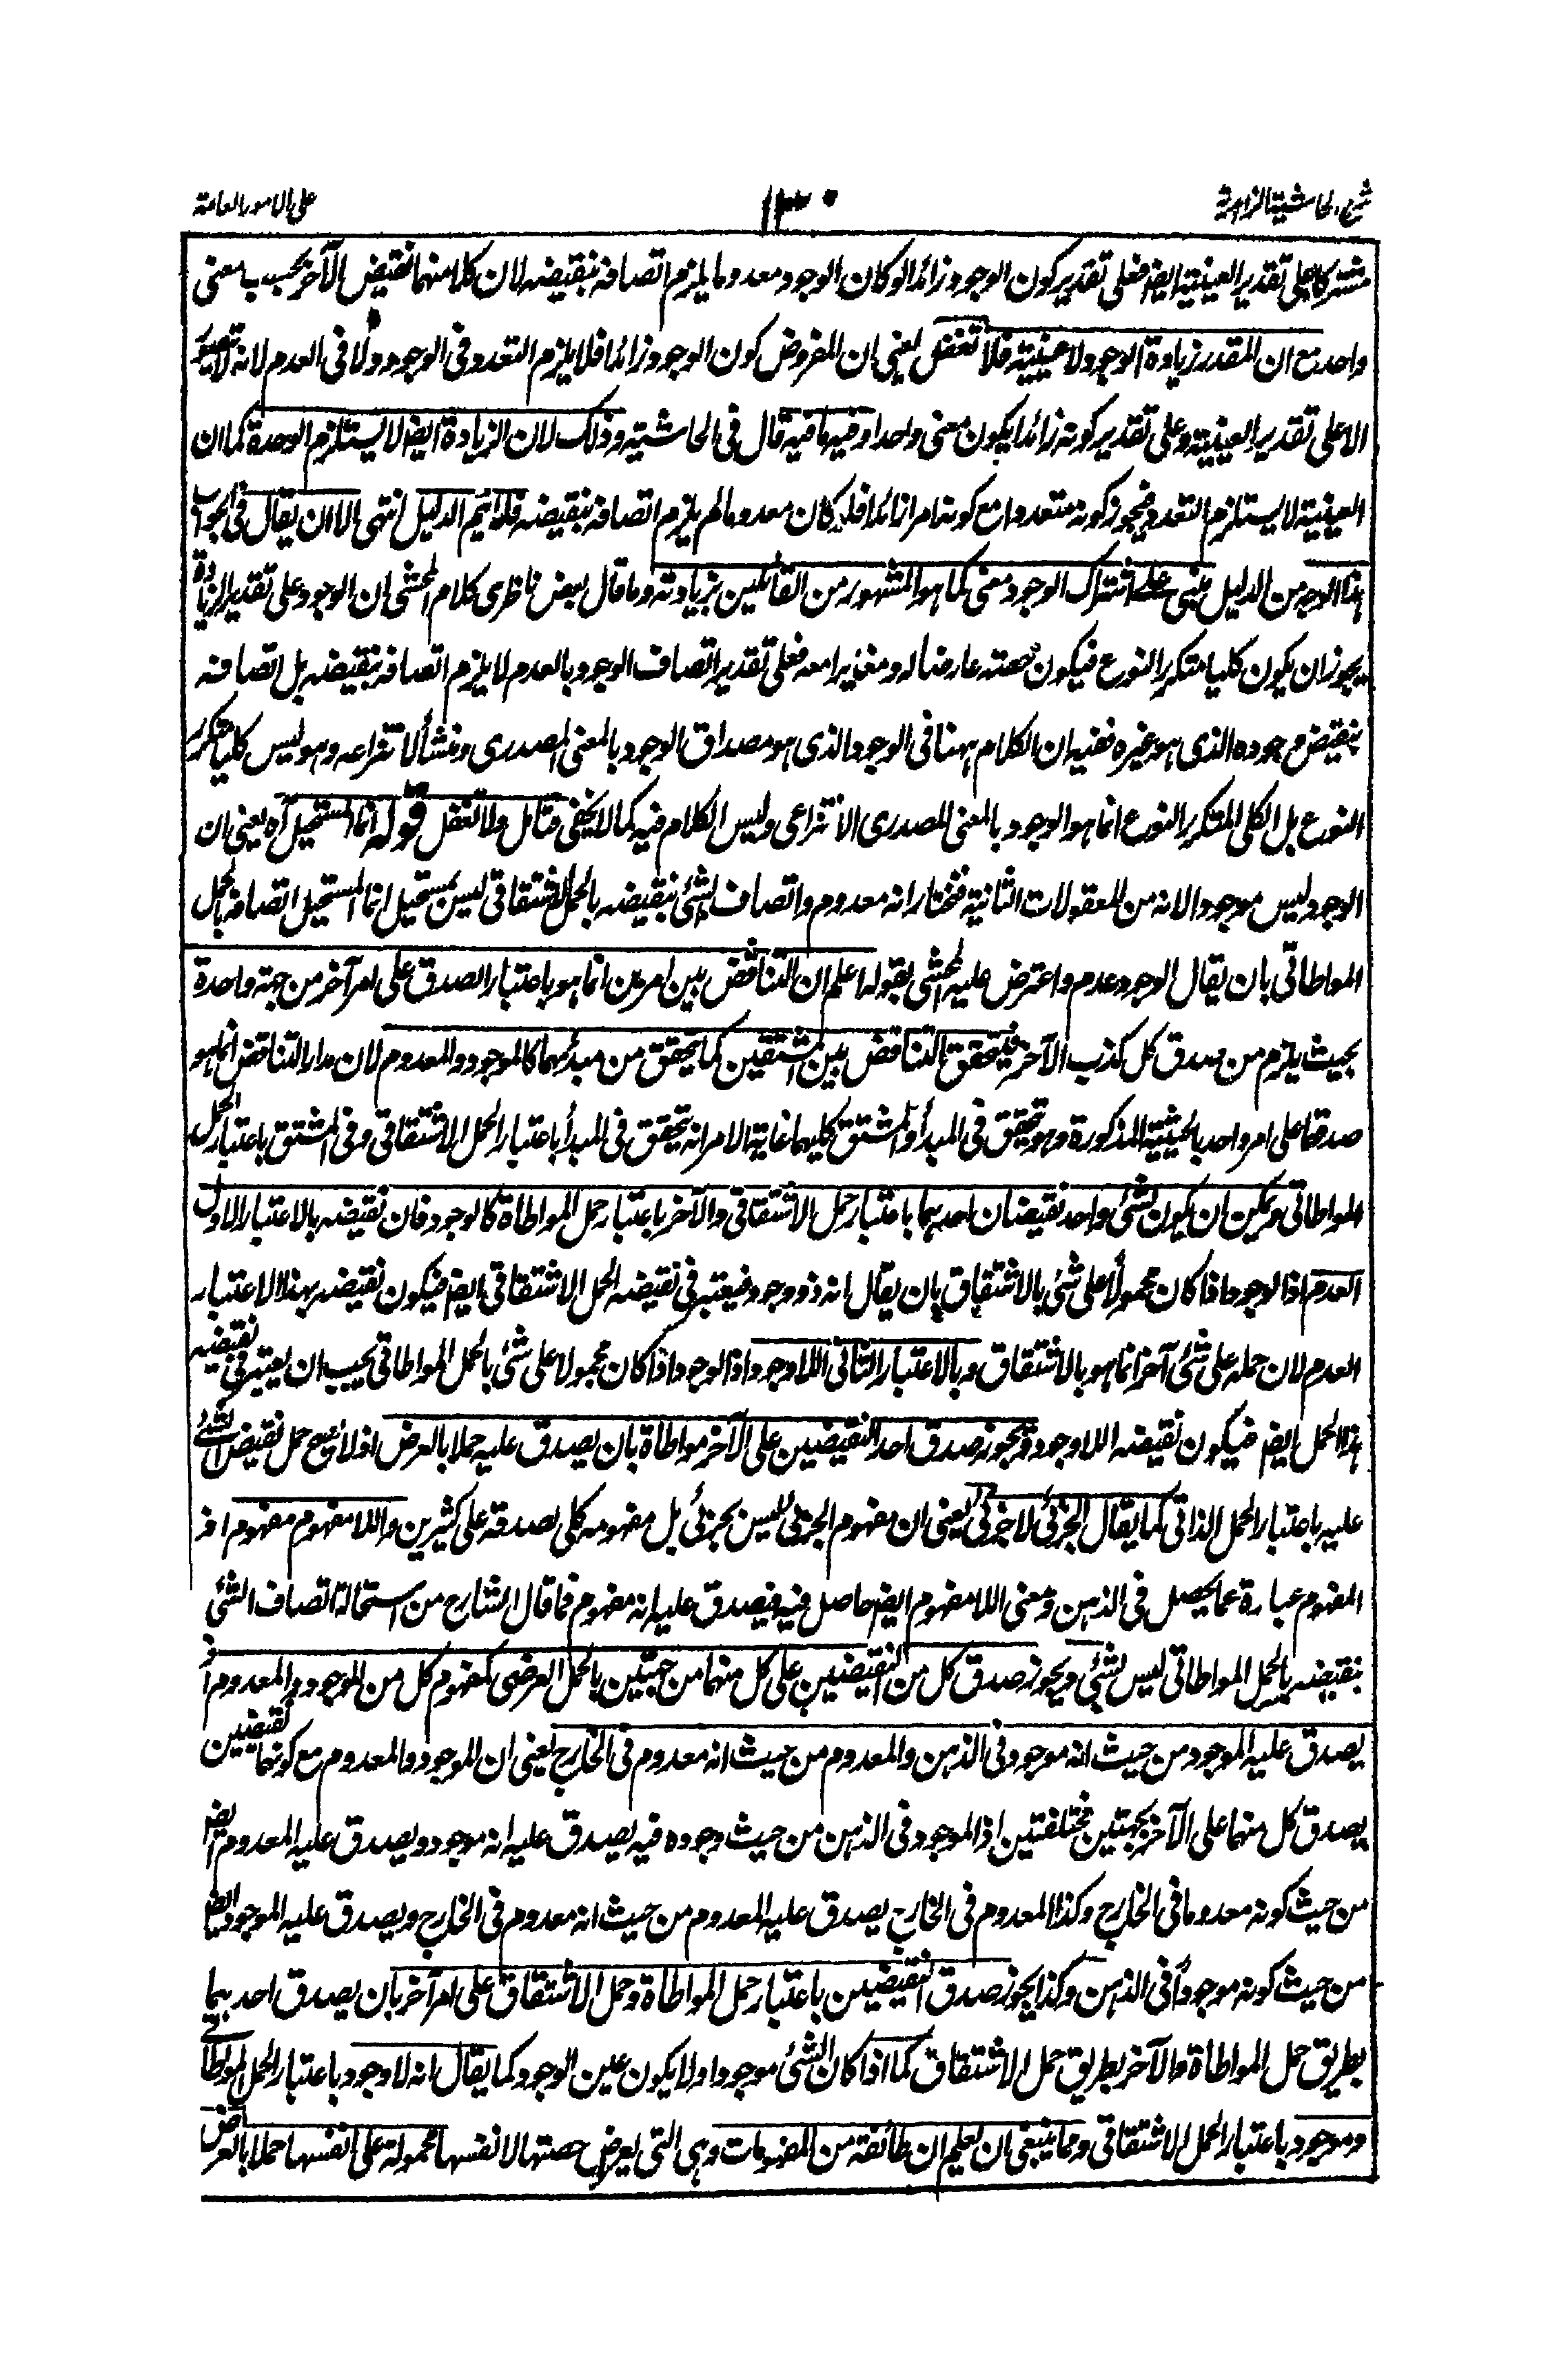 شرح الحاشية الزاهدية
١٣٠
على الامور العامة
مشتركا على تقدير العينية ايضا فعلى تقدير كون الوجود زائدا لو كان الوجود معدوما يلزم اتصافه بنقيضه لان كلا منهما نقيض الآخر بحسب معنى
واحد مع ان المقدر زيادة الوجود لا عينيته فلا تغفل يعني ان المفروض كون الوجود زائدا فلا يلزم التعدد في الوجود ولا في العدم لانه لا يتصور
الا على تقدير العينية وعلى تقدير كونه زائدا يكون معنى واحدا وفيه ما فيه قال في الحاشية وذلك لان الزيادة ايضا لا يستلزم الوحدة كما ان
العينية لا يستلزم التعدد فيجوز كونه متعددا مع كونه امرا زائدا فلو كان معدوما لم يلزم اتصافه بنقيضه فلا يتم الدليل انتهى الا ان يقال في الجواب
هذا الوجه من الدليل مبني على اشتراك الوجود معنى كما هو المشهور من القائلين بزيادته وما قال بعض ناظري كلام المحشي ان الوجود على تقدير الزيادة
يجوز ان يكون كليا متكرر النوع فيكون حصته عارضا له ومغايرا معه فعلى تقدير اتصاف الوجود بالعدم لا يلزم اتصافه بنقيضه بل اتصافه
بنقيض وجوده الذي هو غيره ففيه ان الكلام ههنا في الوجود الذي هو مصداق الوجود بالمعنى المصدري ومنشأ لانتزاعه وهو ليس كليا متكرر
النوع بل الكلي المتكرر النوع انما هو الوجود بالمعنى المصدري الانتزاعي وليس الكلام فيه كما لا يخفى فتامل ولا تغفل قوله انما المستحيل آه يعني ان
الوجود ليس موجودا لانه من المعقولات الثانية فنختار انه معدوم واتصاف الشئ بنقيضه بالحمل الاشتقاقي ليس بمستحيل انما المستحيل اتصافه بالحمل
المواطاتي بان يقال الوجود عدم واعترض عليه المحشي بقوله اعلم ان التناقض بين امرين انما هو باعتبار الصدق على امر آخر من جهة واحدة
بحيث يلزم من صدق كل كذب الآخر فيتحقق التناقض بين المشتقين كما يتحقق من مبدئهما كالموجود والمعدوم لان مدار التناقض انما هو
صدقهما على امر واحد بالحيثية المذكورة وهو تحقق في المبدأ والمشتق كليهما غاية الامر انه يتحقق في المبدأ باعتبار الحمل الاشتقاقي وفي المشتق باعتبار الحمل
المواطاتي ويمكن ان يكون لشئ واحد نقيضان احدهما باعتبار حمل الاشتقاقي والآخر باعتبار حمل المواطاة كالوجود فان نقيضه بالاعتبار الاول
العدم اذ الوجود اذا كان محمولا على شئ بالاشتقاق بان يقال انه ذو وجود فيعتبر في نقيضه الحمل الاشتقاقي ايضا فيكون نقيضه بهذا الاعتبار
العدم لان حمله على شئ آخر انما هو بالاشتقاق وبالاعتبار الثاني اللاوجود اذ الوجود اذا كان محمولا على شئ بالحمل المواطاتي يجب ان يعتبر في نقيضه
هذا الحمل ايضا فيكون نقيضه اللاوجود ويجوز صدق احد النقيضين على الآخر مواطاة بان يصدق عليه حملا بالعرض اذ لا يصح حمل نقيض الشئ
عليه باعتبار الحمل الذاتي كما يقال الجزئي لا جزئي يعني ان مفهوم الجزئي ليس بجزئي بل مفهومه كلي بصدقه على كثيرين واللامفهوم مفهوم اذ
المفهوم عبارة عما يحصل في الذهن ومعنى اللامفهوم ايضا حاصل فيه فيصدق عليه انه مفهوم فما قال الشارح من استحالة اتصاف الشئ
بنقيضه بالحمل المواطاتي ليس بشئ ويجوز صدق كل من النقيضين على كل منهما من جهتين بالحمل العرضي كمفهوم كل من الموجود والمعدوم اذ
يصدق عليه الموجود من حيث انه موجود في الذهن والمعدوم من حيث انه معدوم في الخارج يعني ان الموجود والمعدوم مع كونهما نقيضين
يصدق كل منهما على الآخر بجهتين مختلفتين اذ الموجود في الذهن من حيث وجوده فيه يصدق عليه انه موجود ويصدق عليه المعدوم ايضا
من حيث كونه معدوما في الخارج وكذا المعدوم في الخارج يصدق عليه المعدوم من حيث انه معدوم في الخارج ويصدق عليه الموجود ايضا
من حيث كونه موجودا في الذهن وكذا يجوز صدق النقيضين باعتبار حمل المواطاة وحمل الاشتقاق على امر آخر بان يصدق احدهما
بطريق حمل المواطاة والآخر بطريق حمل الاشتقاق كما اذا كان الشئ موجودا ولا يكون عين الوجود كما يقال انه لا وجود باعتبار الحمل المواطاتي
وموجود باعتبار الحمل الاشتقاقي ومما ينبغي ان يعلم ان طائفة من المفهومات وهي التي يعرض حصتها لانفسها محمولة على انفسها حملا بالعرض